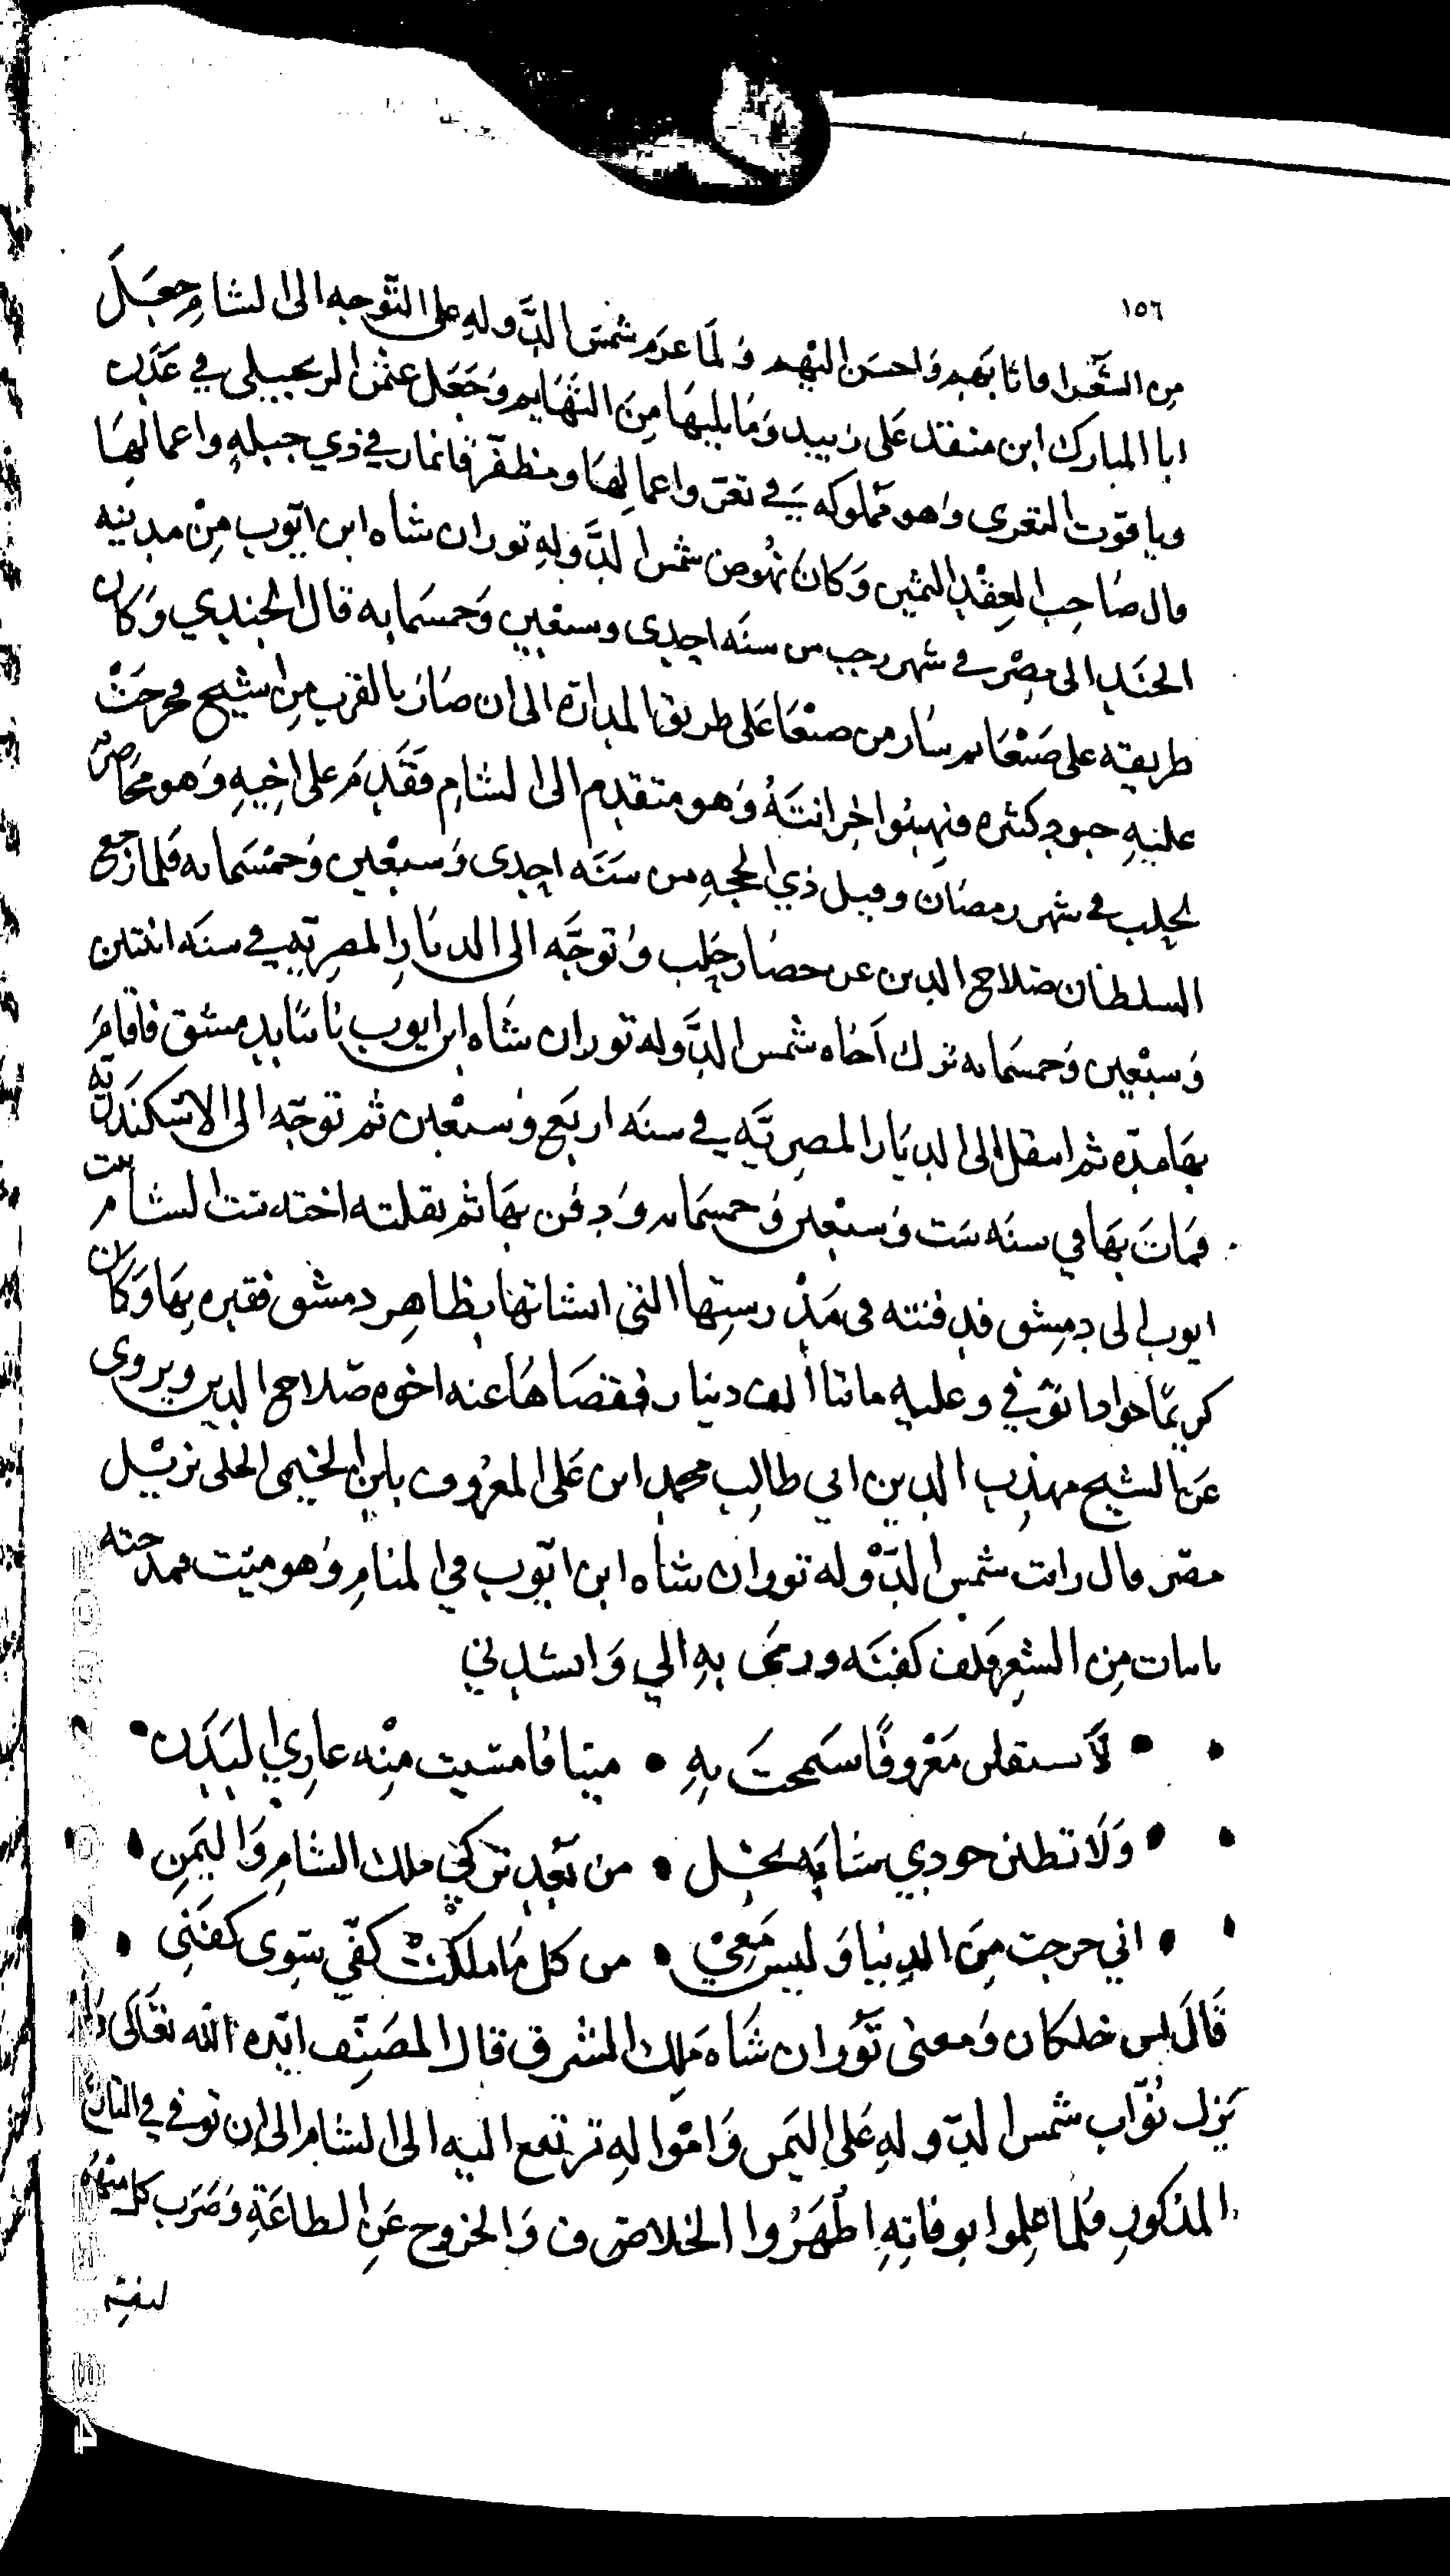 ١٥٦
من الشعرا فاثابهم واحسن اليهم ولما عزم شمس الدوله على التوجه الى الشام جعل
ابا المبارك ابن منقذ على زبيد وما يليها من التهايم وجعل عثمن الزنجبيلي في عدن
وياقوت التعزى وهو مملوكه في تعز واعمالها ومظفر قايماز في ذي جبله واعمالها
قال صاحب العقد الثمين وكان نهوض شمس الدوله توران شاه ابن ايوب من مدينه
الجند الى مصر في شهر رجب من سنه احدى وسبعين وخمسمايه قال الجندي وكان
طريقه على صنعا ثم سار من صنعا على طريق الى ان صار بالقرب من فخرجت
عليه كثره فنهبوا خزانته وهو متقدم الى الشام فقدم على اخيه وهو محاصر
لحلب في شهر رمضان وقيل ذي الحجه من سنه احدى وسبعين وخمسمايه فلما رجع
السلطان صلاح الدين عن حصار حلب وتوجه الى الديار المصريه في سنه اثنتين
وسبعين وخمسمايه ترك اخاه شمس الدوله توران شاه ابن ايوب نائبا بدمشق فاقام
بها مده ثم انتقل الى الديار المصريه في سنه اربع وسبعين ثم توجه الى الاسكندريه
فمات بها في سنه ست وسبعين وخمسمايه ودفن بها ثم نقلته اخته ست الشام بنت
ايوب الى دمشق فدفنته في مدرستها التي انشاتها بظاهر دمشق فقبره بها وكان
كريما جوادا توفي وعليه مائتا الف دينار فقضاها عنه اخوه صلاح الدين ويروى
عن الشيخ مهذب الدين ابي طالب محمد ابن على المعروف بابن الخيمى الحلى نزيل
مصر قال رايت شمس الدوله توران شاه ابن ايوب في المنام وهو ميت فمدحته
بابيات من الشعر فلف كفنه ورمى به الي وانشدني
لا تستقلن معروفا سمحت به • ميتا فامسيت منه عاري البدن
ولا تظنن جودي شابه بخل • من بعد تركي ملك الشام واليمن
اني خرجت من الدنيا وليس معي • من كل ما ملكت كفي سوى كفني
قال ابن خلكان ومعنى توران شاه ملك المشرق قال المصنف ايده الله تعالى
يزل نواب شمس الدوله على اليمن وامواله ترتفع اليه الى الشام الى ان توفي في التاريخ
المذكور فلما علموا بوفاته اظهروا الخلاف والخروج عن الطاعة وضرب كل منهم
لنفسه